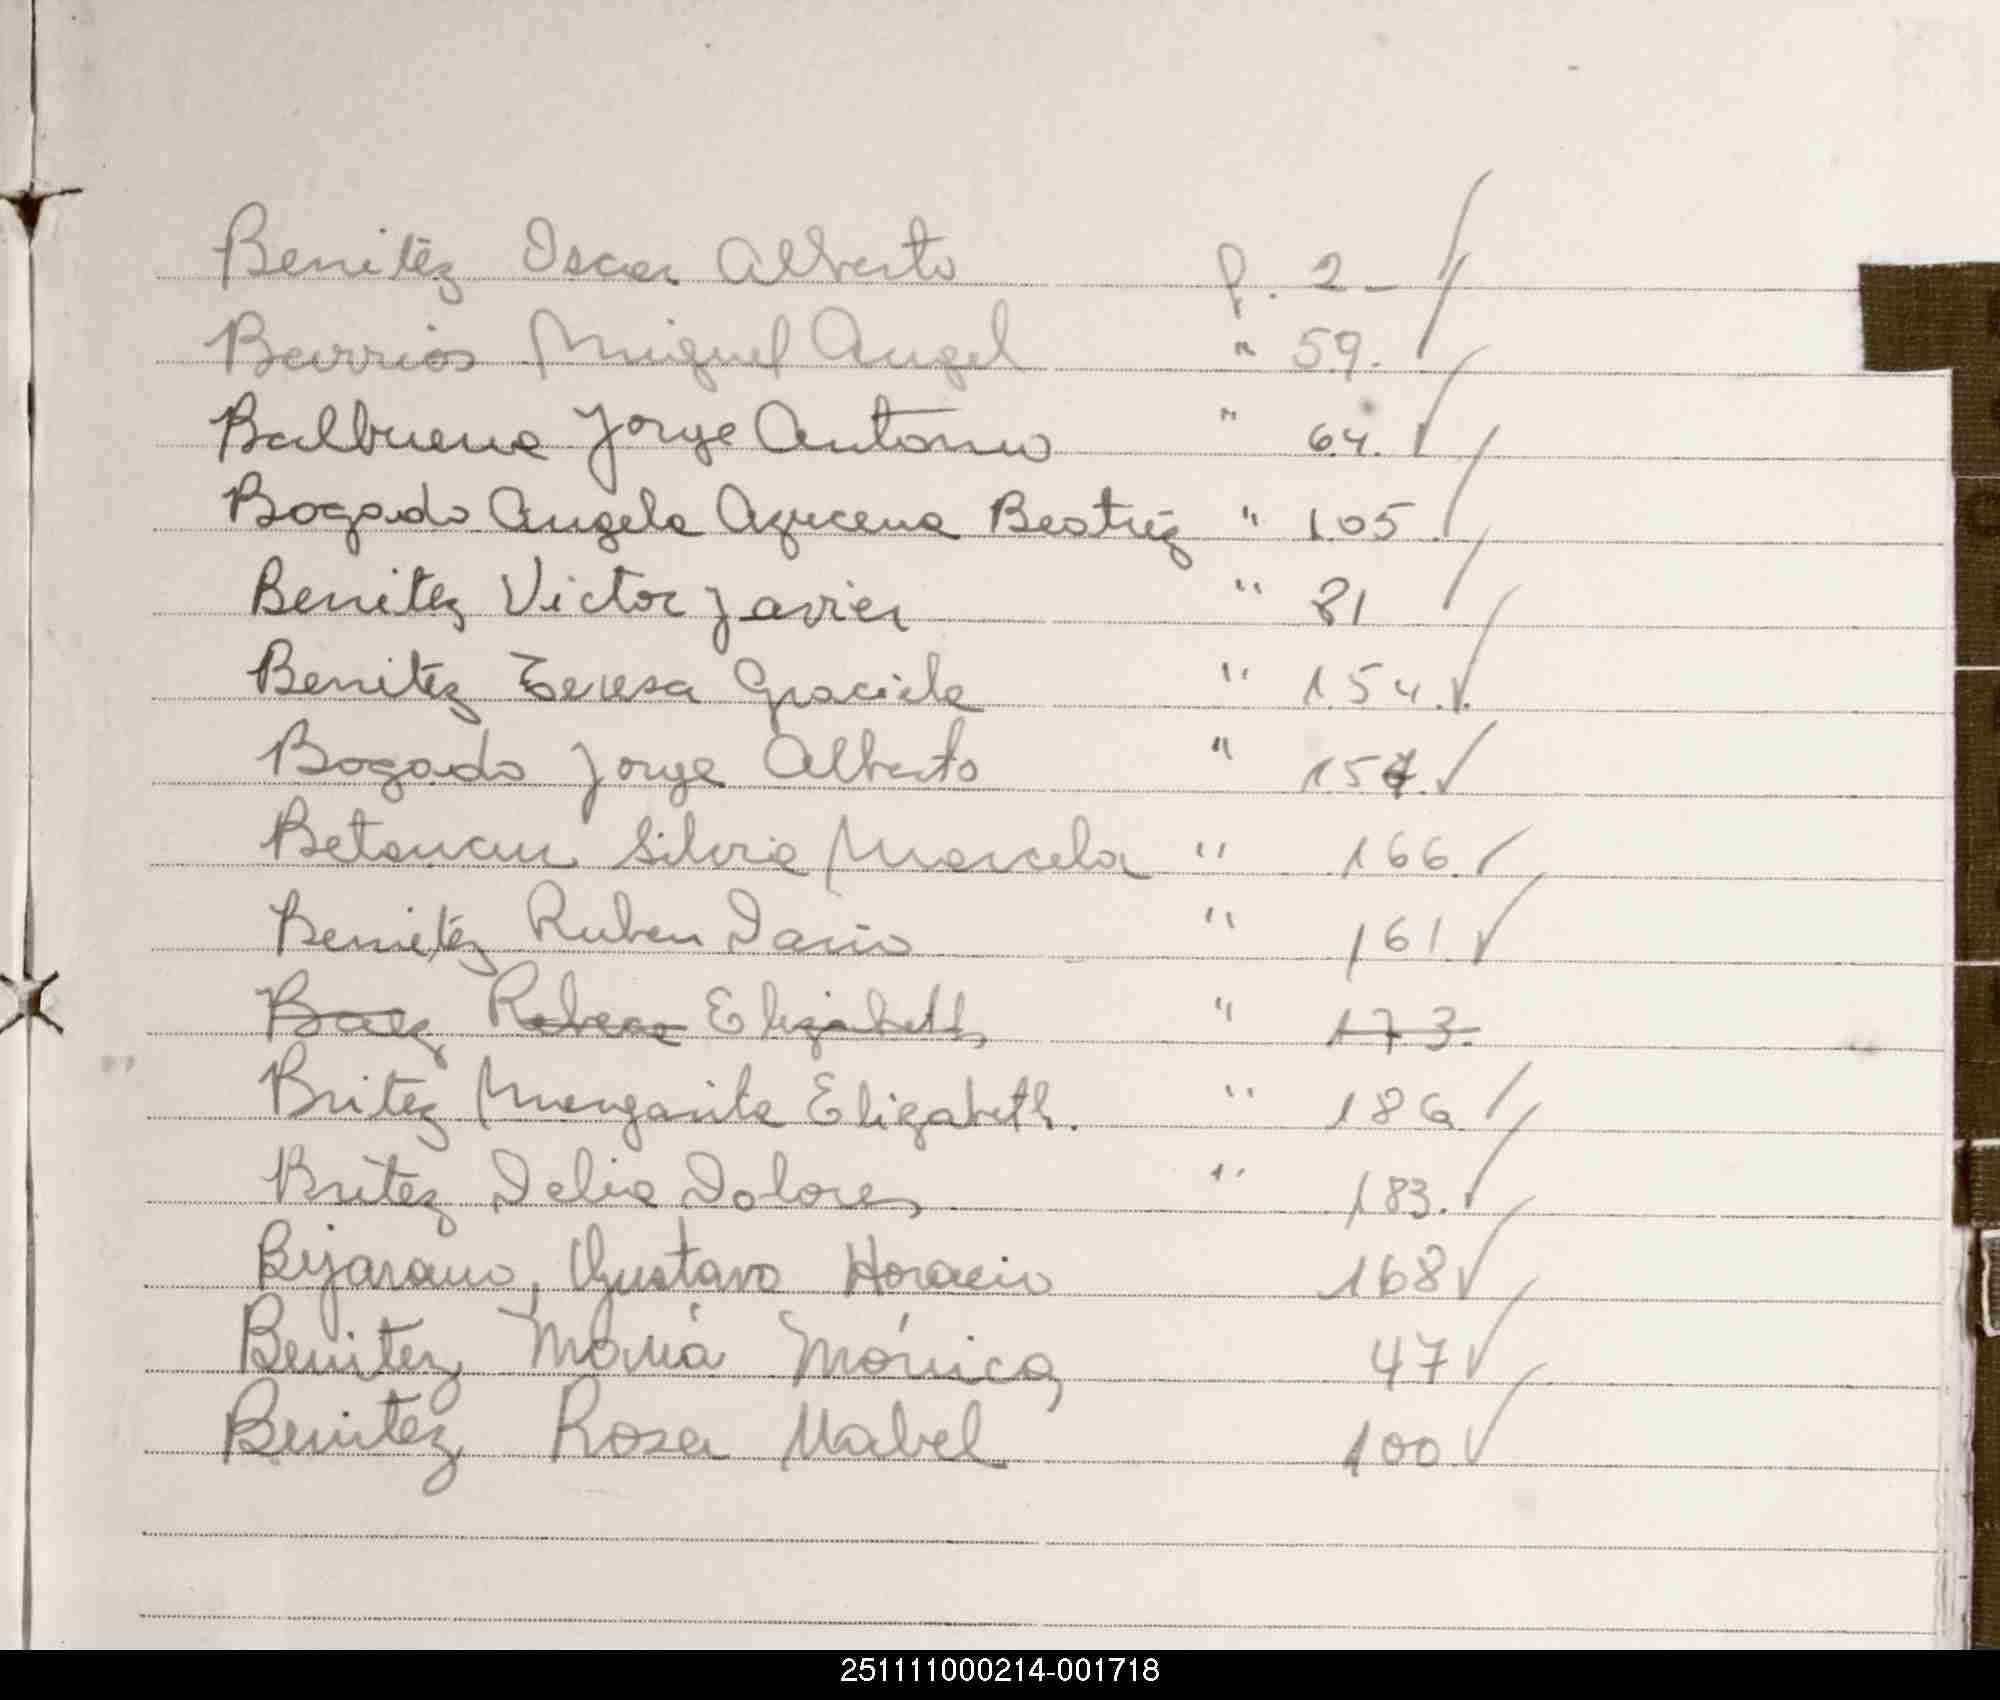 Benitez Oscar Alberto f. 2 -
Barrios Miguel Angel " 59.
Balbuena Jorge Antonio " 64.
Bogado Angela Azucena Beatriz " 105
Benitez Victor Javier " 81
Benitez Teresa Graciela " 154.
Bogado Jorge Alberto " 157.
Betancur Silvia Marcela " 166.
Benitez Ruben Dario " 161
Baez Rebeca Elizabeth " 173.
Britez Margarita Elizabeth. " 186
Britez Delia Dolores " 183.
Bijarano, Gustavo Horacio 168
Benitez María Mónica 47
Benitez Rosa Mabel 100
251111000214-001718